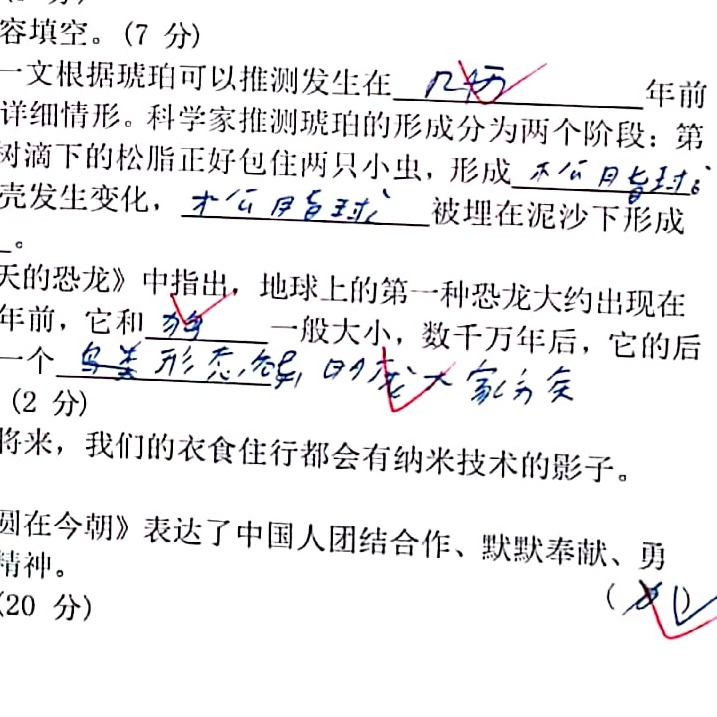 容填空。(7 分)
一文根据琥珀可以推测发生在 几万 年前
详细情形。科学家推测琥珀的形成分为两个阶段：第
树滴下的松脂正好包住两只小虫，形成 松脂球
壳发生变化， 松脂球 被埋在泥沙下形成
。
天的恐龙》中指出，地球上的第一种恐龙大约出现在
年前，它和 狗 一般大小，数千万年后，它的后
一个 鸟类 形态 庞大家族
(2 分)
将来，我们的衣食住行都会有纳米技术的影子。
圆在今朝》表达了中国人团结合作、默默奉献、勇
精神。 ( )
(20 分)